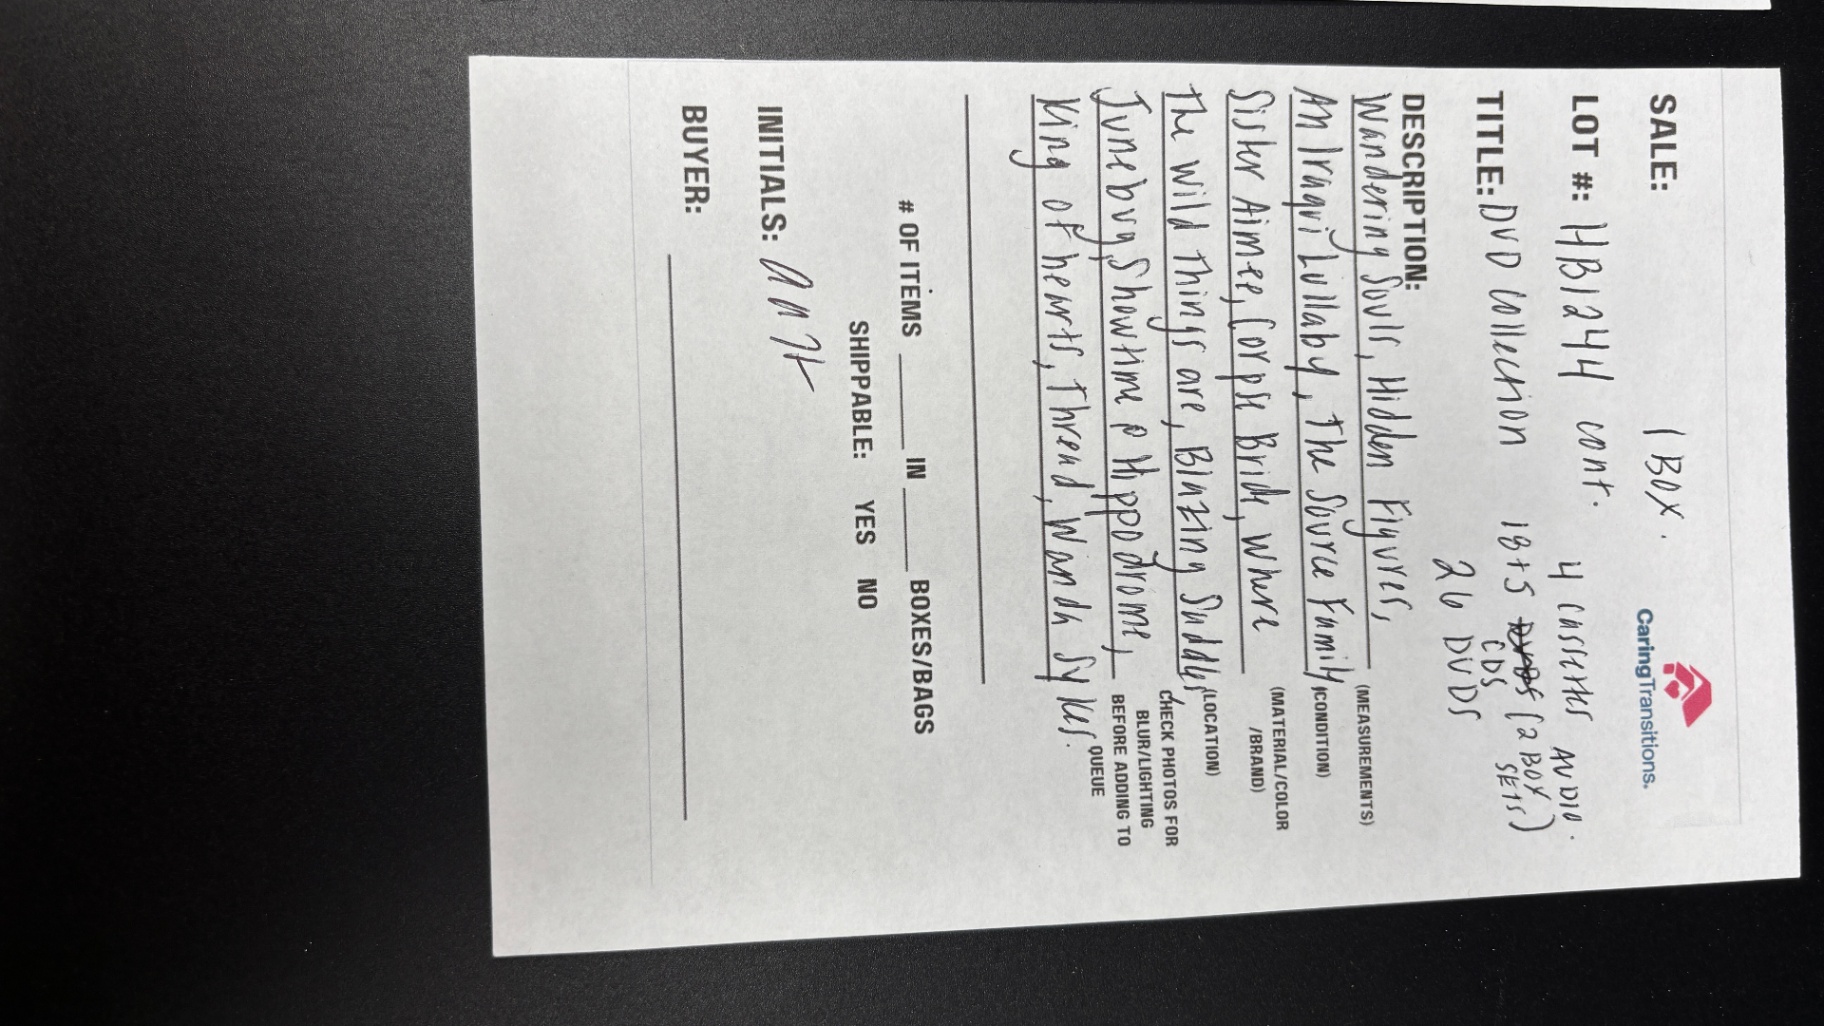 SALE: 1 BOX.
CaringTransitions.
LOT #: HB1244 cont. 4 cassettes AUDIO.
TITLE: DVD Collection 18+5 DVDS (2 BOX SETS)
CDS
26 DVDS
DESCRIPTION:
Wandering Souls, Hidden Figures, (MEASUREMENTS)
An Iraqi Lullaby, The Source Family, (CONDITION)
Sister Aimee, Corpse Bride, Where (MATERIAL/COLOR /BRAND)
The wild things are, Blazing Saddles, (LOCATION)
Junebug, Showtime @ Hippodrome, CHECK PHOTOS FOR BLUR/LIGHTING BEFORE ADDING TO QUEUE
King of hearts, Thread, Wanda Sykes.
# OF ITEMS ____ IN ____ BOXES/BAGS
SHIPPABLE: YES NO
INITIALS:
BUYER: